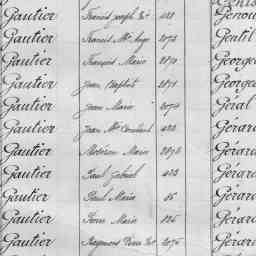 Gautier Francis Joseph 422 Genou
Gautier Francis 2073 Gentil
Gautier François Marie 2890 George
Gautier Jean Baptist 2891 George
Gautier Jean Marie 2074 Géral
Gautier Jean 422 Gérard
Gautier Marie 2892 Gérard
Gautier Paul Gabriel 423 Gérard
Gautier Paul Marie Gérard
Gautier Pierre Marie 126 Gérard
Gautier Raymond Pierre 2075 Gérard